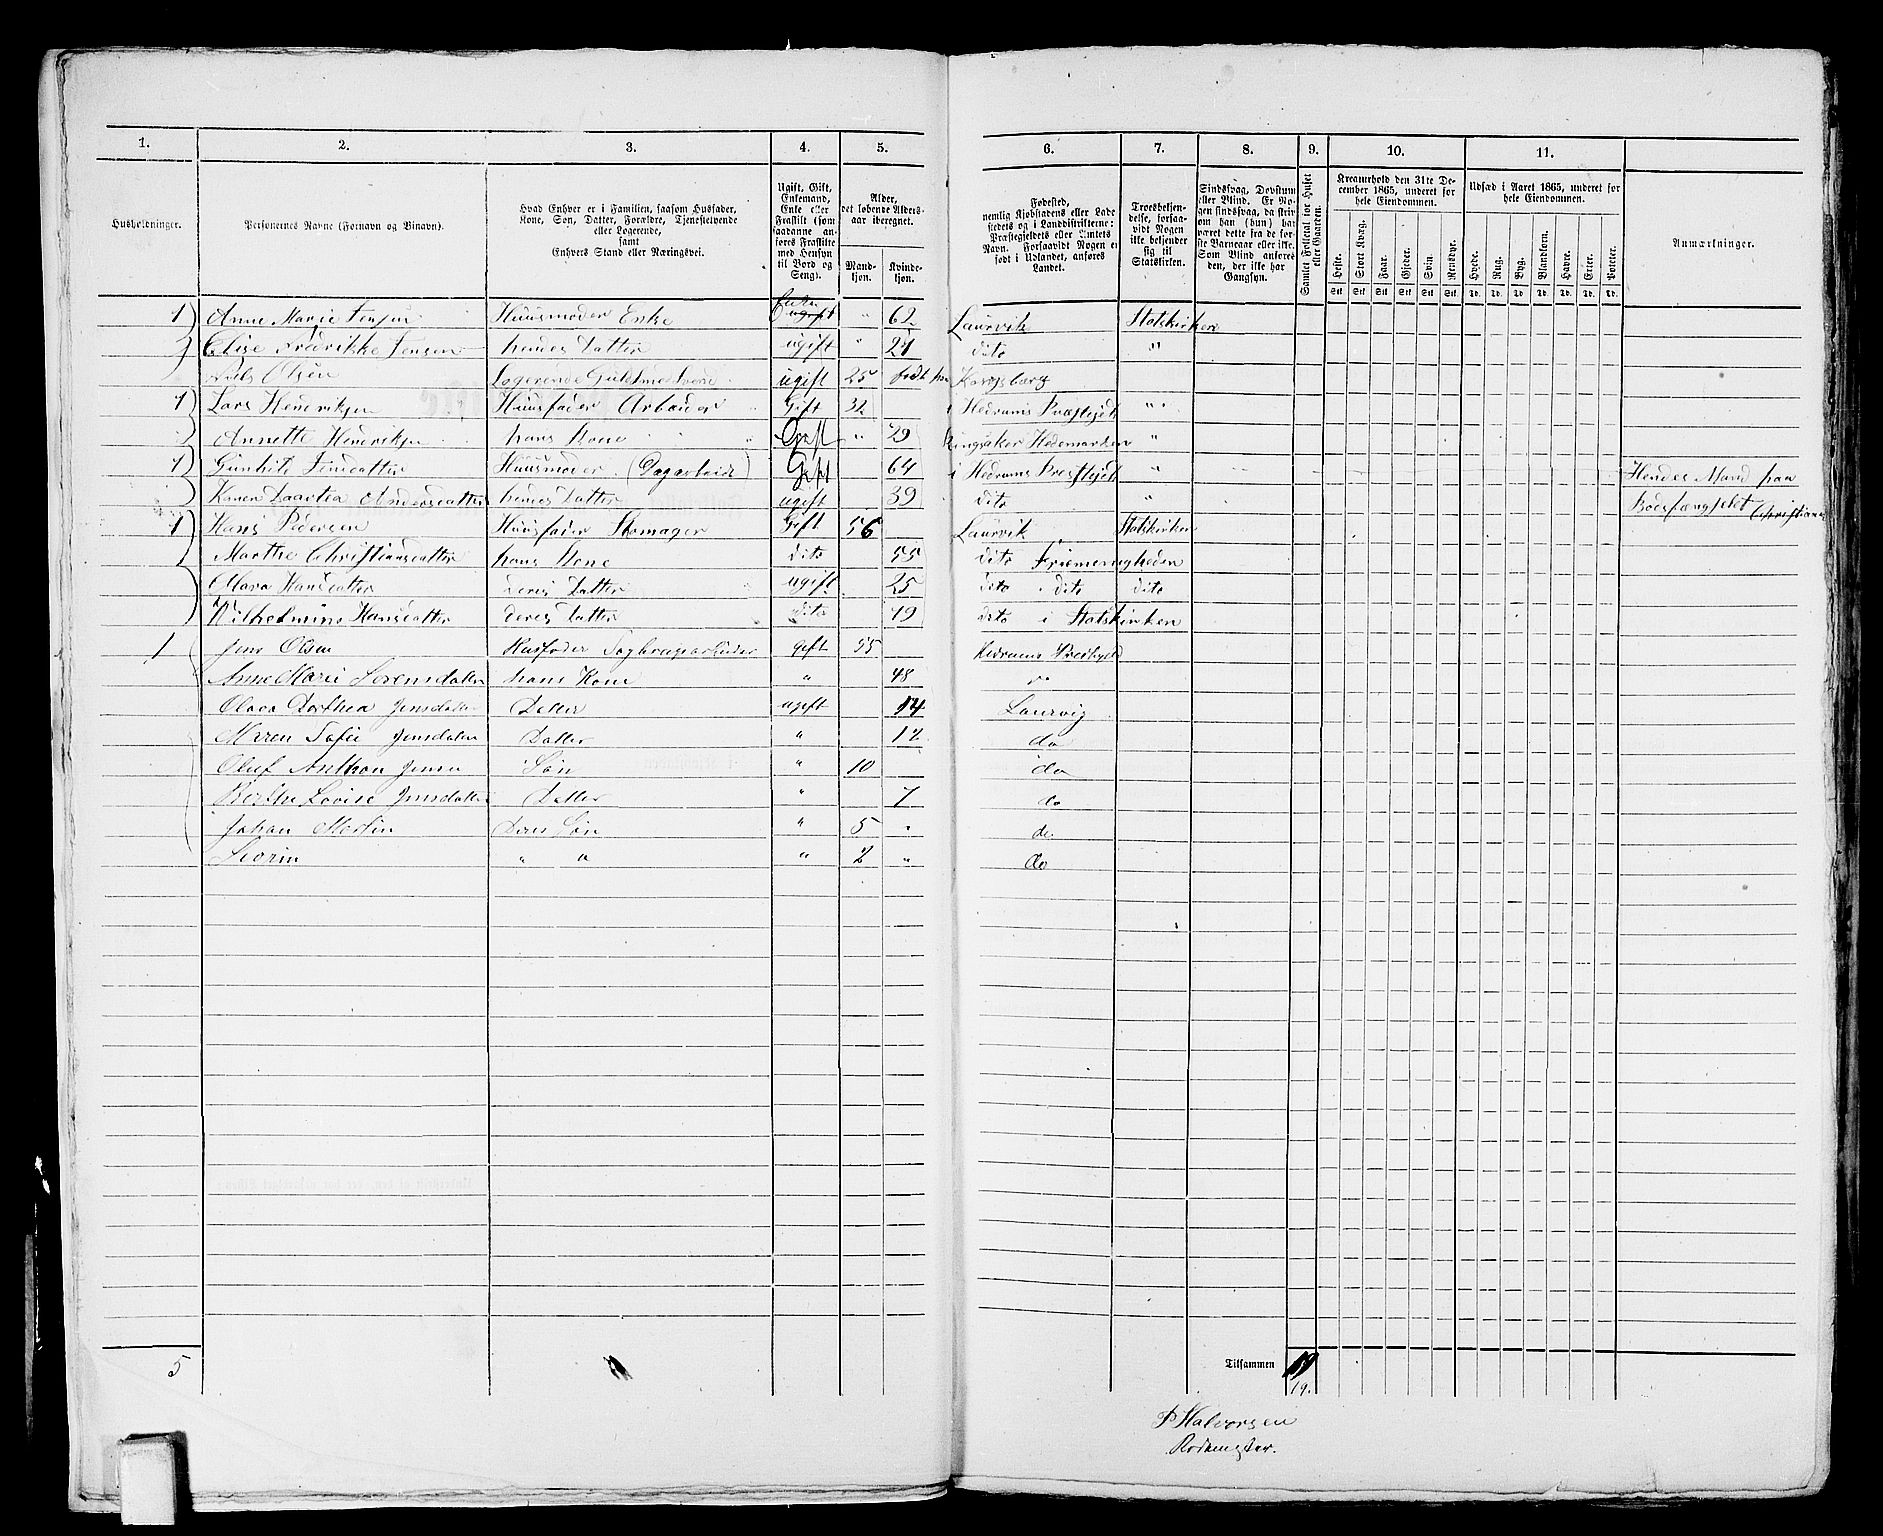 1. 2. 3. 4. 5. 6. 7. 8. 9. 10. 11.
Husholdninger.
Personernes Navne (Fornavn og Binavn).
Hvad Enhver er i Familien, saasom Husfader,
Kone, Søn, Datter, Forældre, Tjenestetyende
eller Logerende,
samt
Enhvers Stand eller Næringsvei.
Ugift, Gift,
Enkemand,
Enke eller
Fraskilt (som
saadanne an-
føres Fraskilte
med Hensyn
til Bord og
Seng).
Alder,
det løbende Alders-
aar iberegnet.
Mand-
kjøn.
Kvinde-
kjøn.
Fødested,
nemlig Kjøbstadens eller Lade-
stedets og i Landdistrikterne:
Præstegjeldets eller Amtets
Navn. Forsaavidt Nogen er
født i Udlandet, anføres
Landet.
Troesbekjen-
delse, forsaa-
vidt Nogen
ikke bekjender
sig til
Statskirken.
Sindssvag, Døvstum
eller Blind. Er No-
gen sindssvag, da skriv
om han (hun) har
været dette fra de før-
ste Barneaar eller ikke.
Som Blind anføres
den, der ikke har
Gangsyn.
Samlet Folketal for Huset
eller Gaarden.
Kreaturhold den 31te De-
cember 1865, underet for
hele Eiendommen.
Heste. Stort Kvæg. Faar. Gjeder. Svin. Rensdyr.
Stk Stk Stk Stk Stk Stk
Udsæd i Aaret 1865, underet for
hele Eiendommen.
Hvede. Rug. Byg. Blandkorn. Havre. Erter. Poteter.
Td. Td. Td. Td. Td. Td. Td.
Anmærkninger.
1 Anne Marie Jensen Huusmoder Enke Enke ugift " 62 Laurvik Statskirken
Elise Fredrikke Jensen hendes Datter ugift " 21 dito "
Niels Olsen Logerende Guldsmedsvend ugift 25 født paa Kongsberg
1 Lars Hendriksen Huusfader Arbeider Gift 32 i Hedrums Præstejeld "
Annette Hendriksen hans Kone Gift " 29 Ringsaker Hedemarken "
1 Gunhild Jensdatter Huusmoder (Dagarbeide) Gift 64 i Hedrums Prestejeld " Hendes Mand paa
Karen Daartea Andersdatter hendes Datter ugift 39 dito " Bodsfængselet Christiania
1 Hans Pedersen Huusfader Skomager Gift 56 Laurvik Statskirken
Marthe Christiansdatter hans Kone dito 55 dito Friemenigheden
Mara Hansdatter deres Datter ugift 25 dito dito dito
Wilhelmine Hansdatter deres Datter dito 19 dito i Statskirken
1 Jens Olsen Husfader Sagbrugsarbeider gift 55 Hedrums Prestegjeld
Anne Marie Sørensdatter hans Kone " 48 do
Olava Dorthea Jensdatter Datter ugift 14 Laurvig
Maren Sofie Jensdatter Datter " 12 do
Oluf Anthon Jensen Søn " 10 do
Berthe Lovise Jensdatter Datter " 7 do
Johan Martin Deres Søn " 5 " do
Severin " " " 2 " do
5 Tilsammen 19
19.
P Halvorsen
Rodemester.